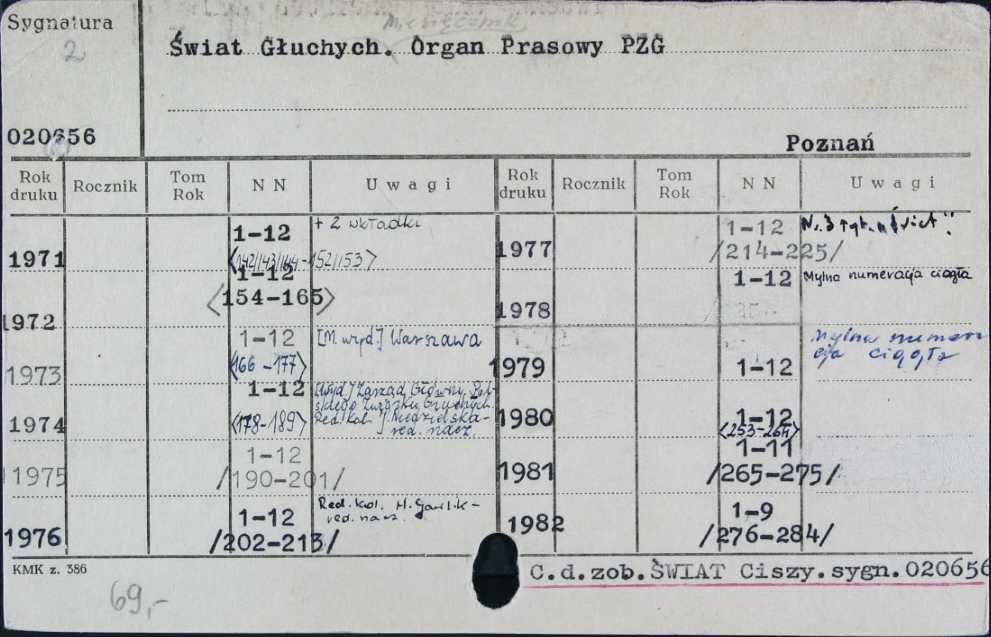 Sygnatura
2
Miesięcznik
Świat Głuchych. Organ Prasowy PZG
020656
Poznań
Rok druku Rocznik Tom Rok NN Uwagi Rok druku Rocznik Tom Rok NN Uwagi
1971 1-12 + 2 wkładki
<142/143/144-152/153>
1972 1-12
<154-165>
1973 1-12 [M. wyd.] Warszawa
<166-177>
1974 1-12 [Wyd.] Zarząd Główny Pol-
skiego Związku Głuchych.
<178-189> Red. kol. J. Niedzielska-
red. nacz.
1975 1-12
/190-201/
1976 1-12 Red. kol. H. Gawlik-
red. nacz.
/202-213/
1977 1-12 Nr. 3 tyt. „Świat".
/214-225/
1978 1-12 Mylna numeracja ciągła
1979 1-12 Mylna numera
cja ciągła
1980 1-12
<253-264>
1981 1-11
/265-275/
1982 1-9
/276-284/
KMK z. 386
C.d.zob.ŚWIAT Ciszy.sygn.020656
69,-